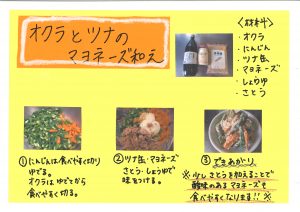 オクラとツナの
マヨネーズ和え
<材料>
・オクラ
・にんじん
・ツナ缶
・マヨネーズ
・しょうゆ
・さとう
①にんじんは食べやすく切り
ゆでる。
オクラはゆでてから
食べやすく切る。
②ツナ缶・マヨネーズ
さとう・しょうゆで
味をつける。
③できあがり
※少しさとうを和えることで
酸味のあるマヨネーズも
食べやすくなります!!※